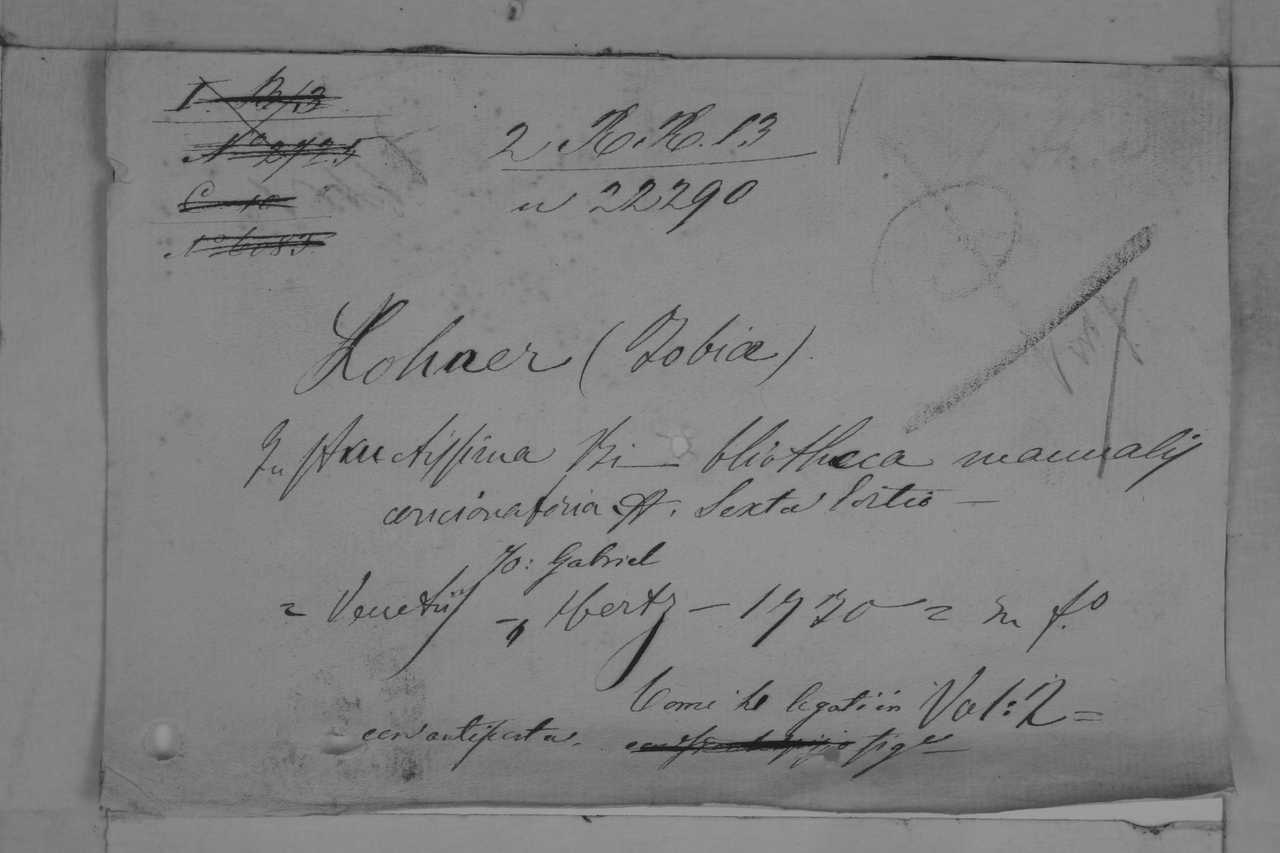 I. R. 13
N° 2725
C. 10
N° 6085
2 R. R. 13
n 22290
Lohner (Tobiæ).
Instructissima Bibliotheca manualis
concionatoria &. Sexta Editio —
Jo: Gabriel
= Venetiis, Hertz — 1730 = In f.°
Tomi legati in Vol: 2 =
con antiporta. fig.